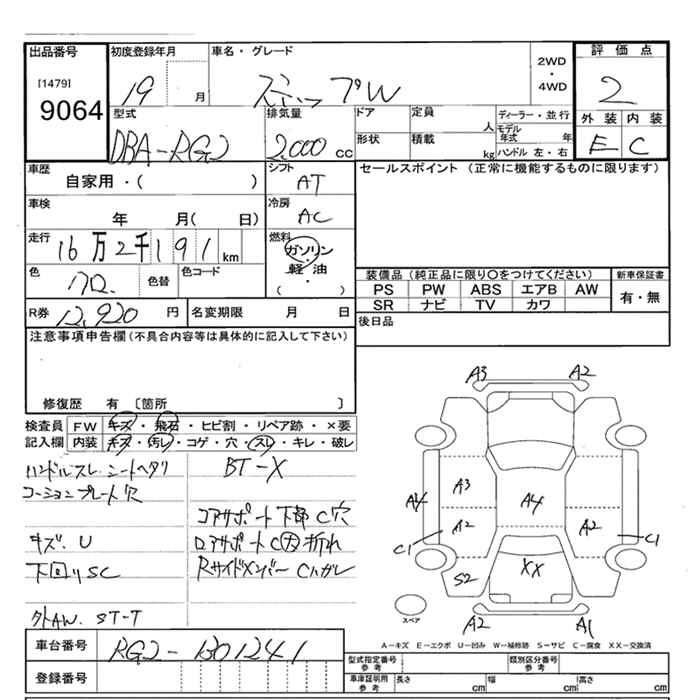 出品番号
[1479]
9064
初度登録年月
19 月
車名・グレード
ステップW
2WD
・
4WD
評価点
2
外装 内装
E C
型式
DBA-RG2
排気量
2,000 cc
ドア
形状
定員
人
積載
kg
ディーラー・並行
モデル
年式 年
ハンドル 左・右
車歴
自家用・( )
シフト
AT
セールスポイント (正常に機能するものに限ります)
車検
年 月( 日)
冷房
AC
走行
16万2千191km
燃料
ガソリン
・
軽・油
( )
色
色替
色コード
装備品 (純正品に限り○をつけてください)
新車保証書
PS PW ABS エアB AW
SR ナビ TV カワ
有・無
R券 12,920 円
名変期限 月 日
後日品
注意事項申告欄(不具合内容等は具体的に記入して下さい)
修復歴 有 〔箇所 〕
検査員
記入欄
FW キズ・飛石・ヒビ割・リペア跡・×要
内装 キズ・汚レ・コゲ・穴・スレ・キレ・破レ
ハンドルスレ シートヘタリ
コーションプレート穴
キズ.U
下回りSC
外AW. ST-T
BT-X
コアサポート下部C穴
ロアサポートC大折れ
RサイドメンバーCハガレ
A3 A2
A3
A4 A4
A2 A2
C1 C1
S2 XX
スペア
A2 A1
A-キズ E-エクボ U-凹み W-補修跡 S-サビ C-腐食 XX-交換済
車台番号
RG2-1301241
登録番号
型式指定番号
参考
類別区分番号
参考
車庫証明用
参考
長さ cm
幅 cm
高さ cm